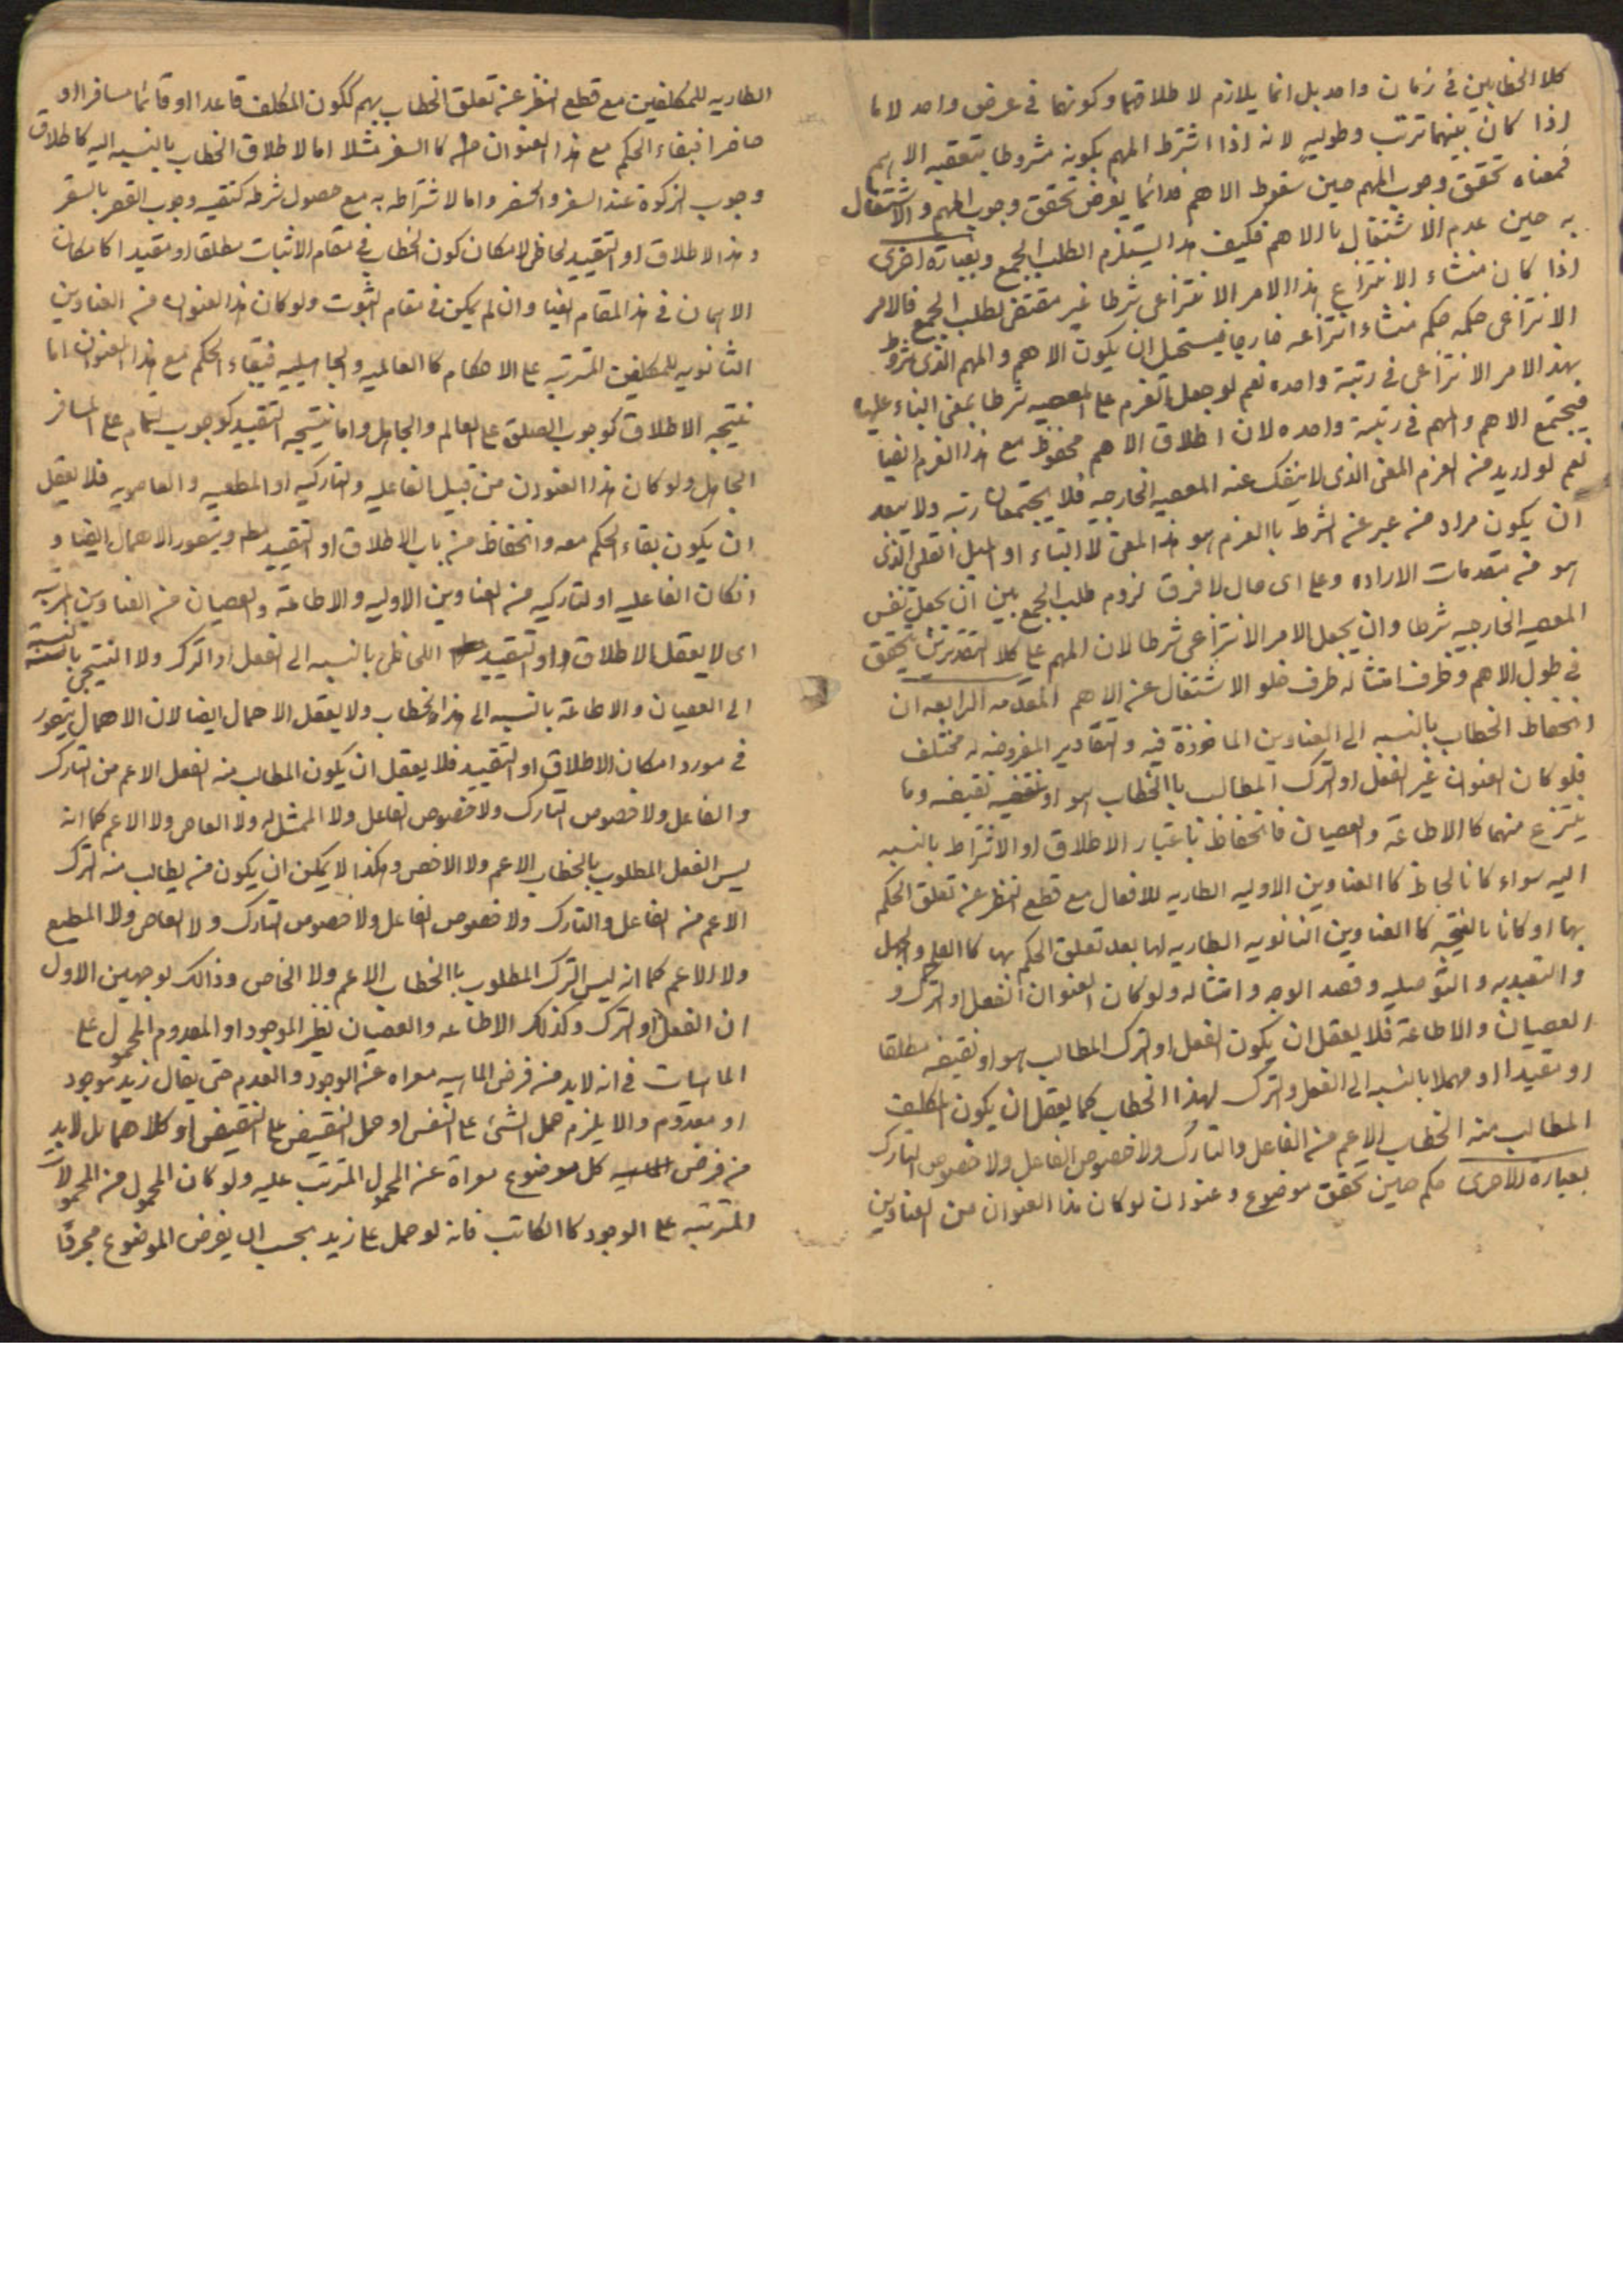 كلا الخطابين في زمان واحد بل انما يلازم لاطلاقهما وكونهما في عرض واحد لا ما
اذا كان بينهما ترتب وطوليه لانه اذا اشترط المهم بكونه مشروطا بتعقبه الاهم
فمعناه تحقق وجوب المهم حين سقوط الاهم فدائما يفرض تحقق وجوب المهم والاشتغال
به حين عدم الاشتغال بالاهم فكيف هذا يستلزم الطلب الجمع وبعبارة اخرى
اذا كان منشاء الانتزاع هذا الامر الانتزاعي شرطا غير مقتض لطلب الجمع فالامر
الانتزاعي حكمه حكم منشاء انتزاعه خارجا فيستحيل ان يكون الاهم والمهم الذي مشروط
بهذا الامر الانتزاعي في رتبة واحده نعم لو جعل العزم على المعصيه شرطا بمعنى البناء عليها
فيجتمع الاهم والمهم في رتبة واحده لان اطلاق الاهم محفوظ مع هذا العزم ايضا
نعم لو اريد من العزم المعنى الذي لا ينفك عنه المعصيه الخارجيه فلا يجتمعان رتبه ولا يبعد
ان يكون مراد من عبر عن الشرط باالعزم هو هذا المعنى لا البناء او الميل القلبي الذي
هو من مقدمات الاراده وعلى اى حال لا فرق لزوم طلب الجمع بين ان يجعل نفس
المعصيه الخارجيه شرطا وان يجعل الامر الانتزاعي شرطا لان المهم على كلا التقديرين يتحقق
في طول الاهم وظرف امتثاله ظرف خلو الاشتغال عن الاهم المقدمه الرابعه ان
انحفاظ الخطاب بالنسبه الى العناوين الماخوذة فيه والتقادير المفروضه له مختلف
فلو كان العنوان غير الفعل او الترك المطالب باالخطاب هو او نقيضه وما
ينتزع منهما كاالاطاعة والعصيان فانحفاظه باعتبار الاطلاق او الاشتراط بالنسبه
اليه سواء كانا لحاظا كاالعناوين الاوليه الطاريه للافعال مع قطع النظر عن تعلق الحكم
بها او كانا بالنتيجه كاالعناوين الثانويه الطاريه لها بعد تعلق الحكم بها كاالعلم والجهل
والتعبديه والتوصليه وقصد الوجه وامتثاله ولو كان العنوان الفعل او الترك و
العصيان والاطاعة فلا يعقل ان يكون الفعل او الترك المطالب هو او نقيضه مطلقا
او مقيدا او مهملا بالنسبه الى الفعل والترك لهذا الخطاب كما يعقل ان يكون المكلف
المطالب منه الخطاب الاعم من الفاعل والتارك ولا خصوص الفاعل ولا خصوص التارك
بعبارة الاخرى حكم حين تحقق موضوع وعنوان لو كان هذا العنوان من العناوين
الطاريه للمكلفين مع قطع النظر عن تعلق الخطاب بهم ككون المكلف قاعدا او قائما مسافرا او
حاضرا فبقاء الحكم مع هذا العنوان كاالسفر مثلا اما لاطلاق الخطاب بالنسبه اليه كاطلاق
وجوب الزكوة عند السفر والحضر واما لاشتراطه به مع حصول شرطه كتقييد وجوب القصر بالسفر
وهذا الاطلاق او التقييد لحاظى لامكان كون الخطاب في مقام الاثبات مطلقا او مقيدا كامكان
الاهمال في هذا المقام ايضا وان لم يكن في مقام الثبوت ولو كان هذا العنوان من العناوين
الثانويه للمكلفين المترتبه على الاحكام كاالعالميه والجاهليه فبقاء الحكم مع هذا العنوان اما
نتيجه الاطلاق كوجوب الصلوة على العالم والجاهل واما نتيجه التقييد كوجوب التمام على المسافر
الجاهل ولو كان هذا العنوان من قبيل الفاعليه والتاركيه او المطيعيه والعاصويه فلا يعقل
ان يكون بقاء الحكم معه وانحفاظه من باب الاطلاق او التقييد ويتصور الاهمال ايضا و
انكان الفاعليه او التاركيه من العناوين الاوليه والاطاعة والعصيان من العناوين المترتبه
اى لا يعقل الاطلاق او التقييد اللحاظى بالنسبه الى الفعل او الترك ولا النتيجى بالنسبة
الى العصيان والاطاعة بالنسبه الى هذا الخطاب ولا يعقل الاهمال ايضا لان الاهمال يتصور
في مورد امكان الاطلاق او التقييد فلا يعقل ان يكون المطالب منه الفعل الاعم من التارك
والفاعل ولا خصوص التارك ولا خصوص الفاعل ولا الممتثل له ولا العاصى ولا الاعم كما انه
ليس الفعل المطلوب بالخطاب الاعم ولا الاخص وهكذا لا يمكن ان يكون من يطالب منه الترك
الاعم من الفاعل والتارك ولا خصوص الفاعل ولا خصوص التارك ولا العاصى ولا المطيع
ولا الاعم كما انه ليس الترك المطلوب باالخطاب الاعم ولا الخاص وذالك لوجهين الاول
ان الفعل او الترك وكذلك الاطاعه والعصيان نظير الموجود او المعدوم المحمول على
الماهيات في انه لابد من فرض الماهيه معراه عن الوجود والعدم حتى يقال زيد موجود
او معدوم والا يلزم حمل الشئ على النفس او حمل النقيض على النقيض او كلاهما بل لابد
من فرض كل موضوع معراة عن المحمول المترتب عليه ولو كان المحمول من المحمولات
المترتبه على الوجود كاالكاتب فانه لو حمل على زيد يجب ان يفرض الموضوع مجردا